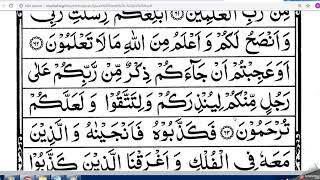 مِّنْ رَّبِّ الْعٰلَمِيْنَ ﴿٦١﴾ اُبَلِّغُكُمْ رِسٰلٰتِ رَبِّيْ
وَاَنْصَحُ لَكُمْ وَاَعْلَمُ مِنَ اللّٰهِ مَا لَا تَعْلَمُوْنَ ﴿٦٢﴾
اَوَعَجِبْتُمْ اَنْ جَآءَكُمْ ذِكْرٌ مِّنْ رَّبِّكُمْ عَلٰى
رَجُلٍ مِّنْكُمْ لِيُنْذِرَكُمْ وَلِتَتَّقُوْا وَلَعَلَّكُمْ
تُرْحَمُوْنَ ﴿٦٣﴾ فَكَذَّبُوْهُ فَاَنْجَيْنٰهُ وَالَّذِيْنَ
مَعَهٗ فِي الْفُلْكِ وَاَغْرَقْنَا الَّذِيْنَ كَذَّبُوْا